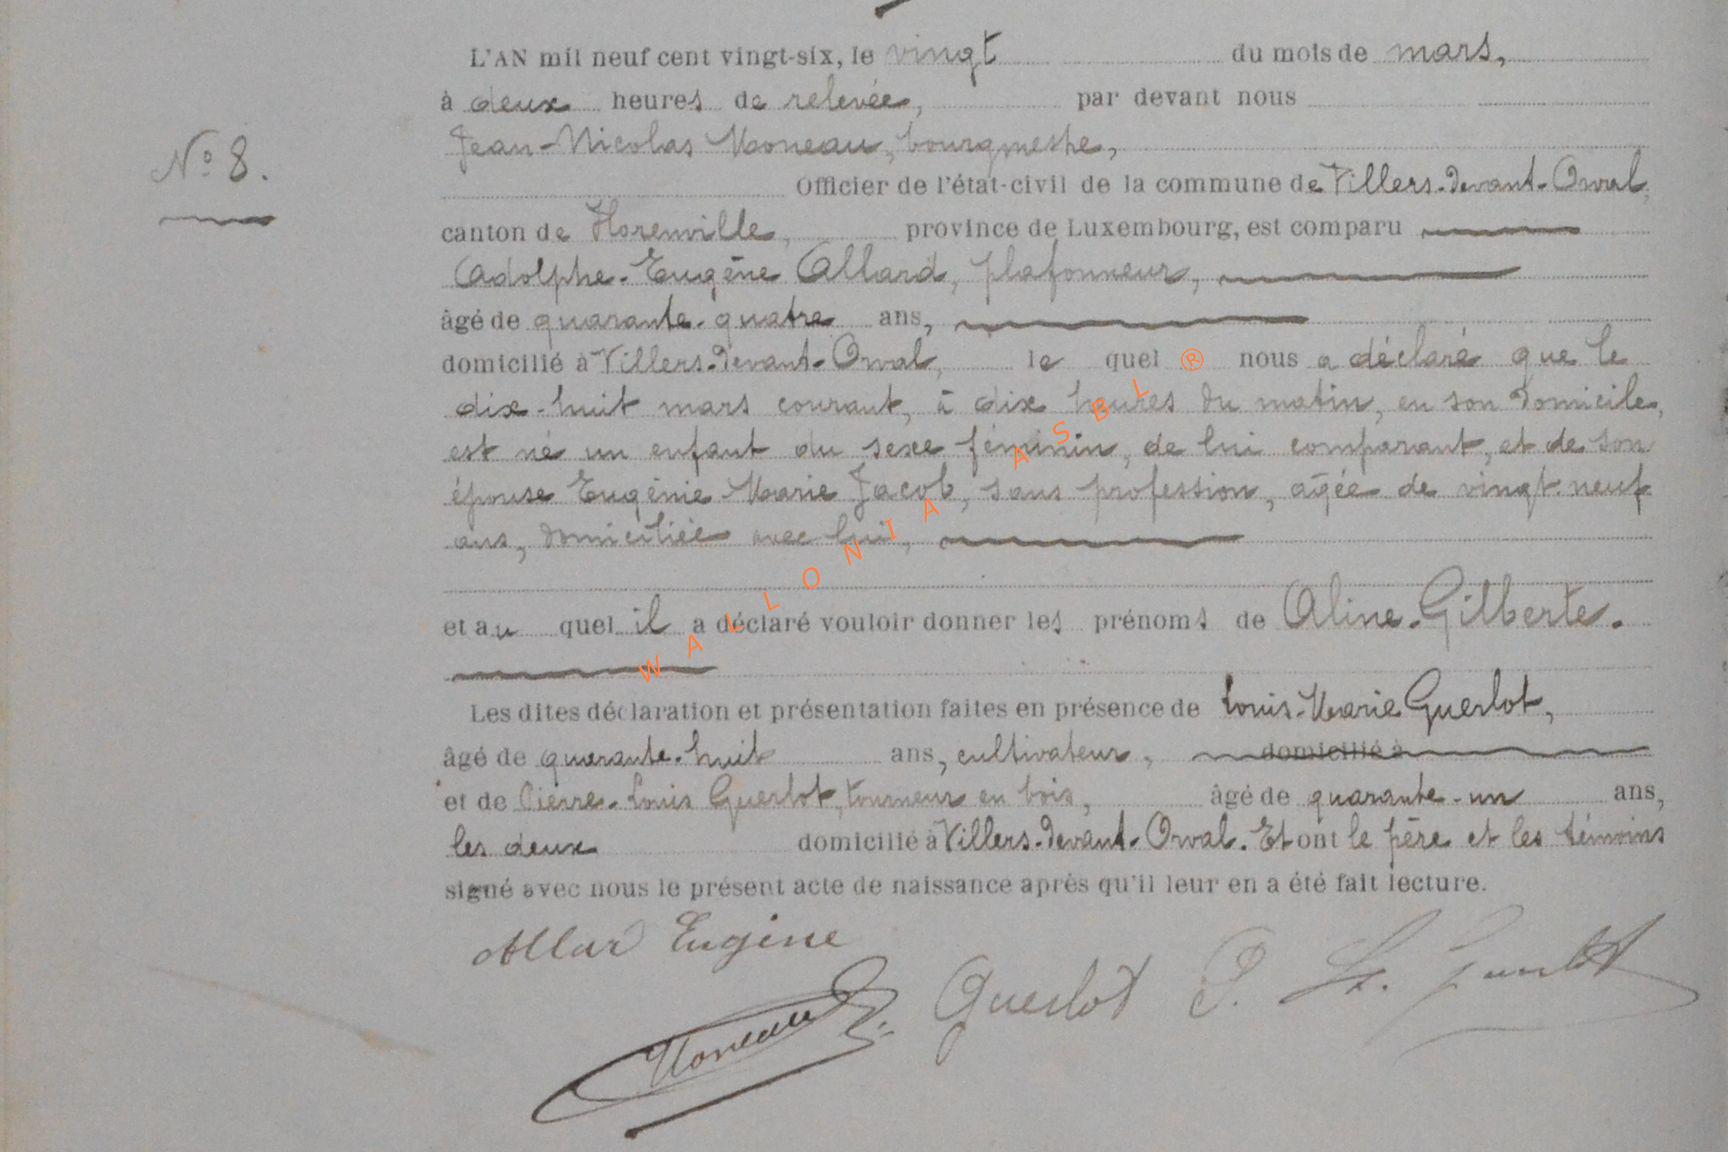 L'AN mil neuf cent vingt-six, le vingt du mois de mars,
à deux heures de relevée, par devant nous
Jean-Nicolas Moneau, bourgmestre,
N° 8.
Officier de l'état-civil de la commune de Villers-devant-Orval,
canton de Florenville, province de Luxembourg, est comparu
Adolphe-Eugène Allard, plafonneur,
âgé de quarante-quatre ans,
domicilié à Villers-devant-Orval, le quel nous a déclaré que le
dix-huit mars courant, à dix heures du matin, en son domicile,
est né un enfant du sexe féminin, de lui comparant, et de son
épouse Eugénie-Marie Jacob, sans profession, agée de vingt-neuf
ans, domiciliée avec lui,
et au quel il a déclaré vouloir donner les prénoms de Aline-Gilberte.
Les dites déclaration et présentation faites en présence de Louis-Marie Guerlot,
âgé de quarante-huit ans, cultivateur, domicilié à
et de Pierre-Louis Guerlot, tourneur en bois, âgé de quarante-un ans,
les deux domicilié à Villers-devant-Orval. Et ont le père et les témoins
signé avec nous le présent acte de naissance après qu'il leur en a été fait lecture.
Allar Eugène
Moneau Guerlot P. L. Guerlot
WALLONIA ASBL ®